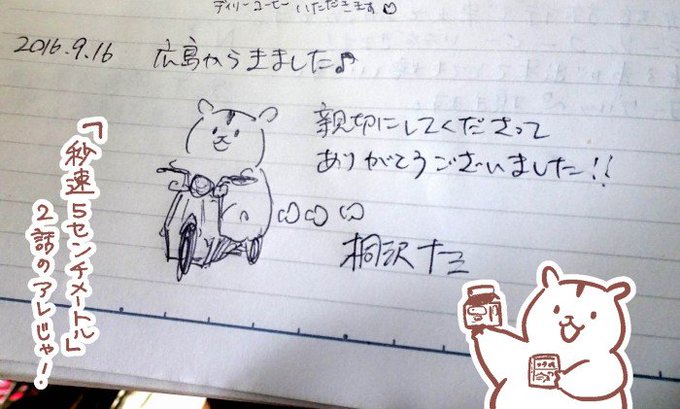 デイリーコーヒーいただきます♡
2016.9.16 広島からきました♪
親切にしてくださって
ありがとうございました!!
桐沢十三
「秒速5センチメートル」
2話のアレじゃ!